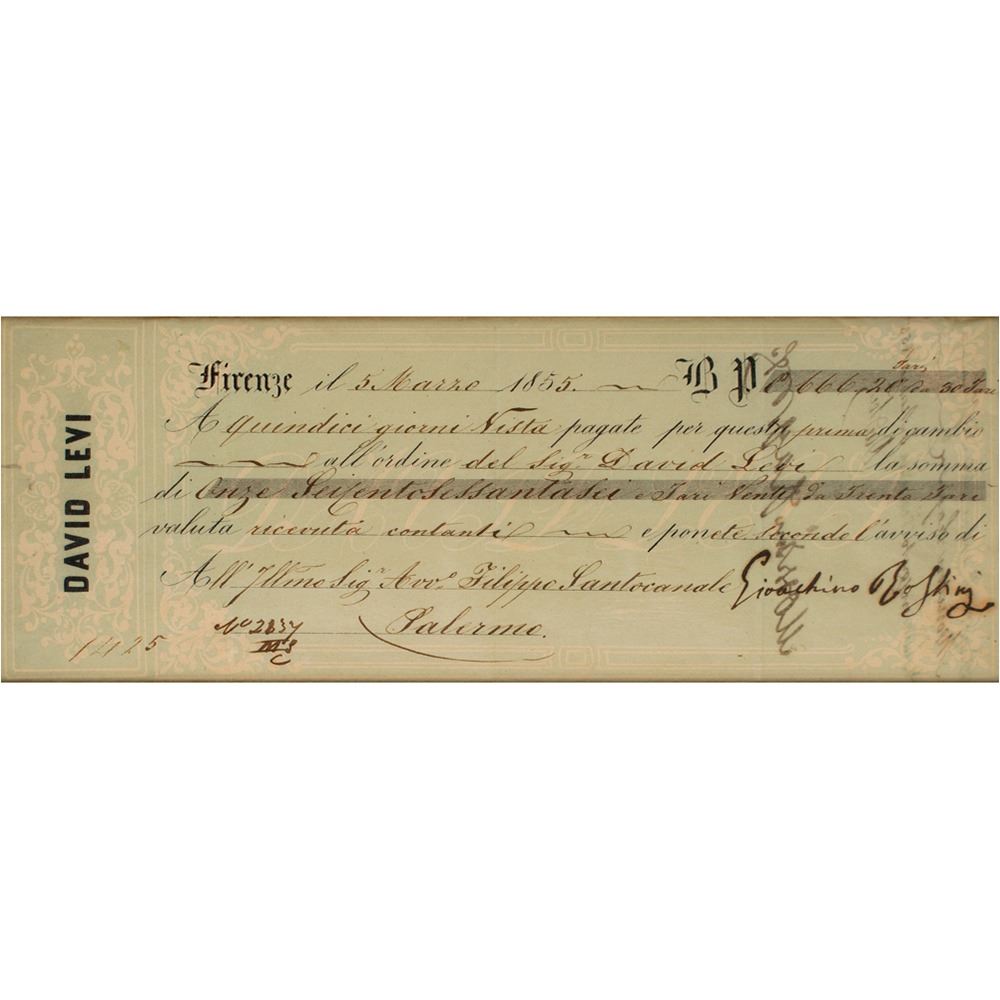 DAVID LEVI
Firenze il 5 Marzo 1855. B P O 666,, 20 Tari da 30 Tari
A quindici giorni Vista pagate per questa prima di cambio
all'ordine del Sigr. David Levi la somma
di Onze SeicentoSessantaSei e Tari Venti da Trenta Tari
valuta ricevuta contanti e ponete secondo l'avviso di
All' Illmo Sigr. Avvo. Filippo Santocanale Gioachino Rossini
No 2837 Palermo.
1425